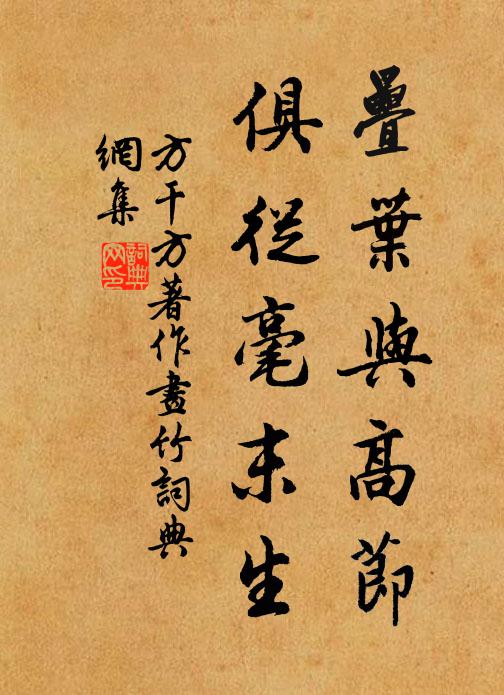 疊葉與高節
俱從毫末生
方干方著作畫竹詞典
網集
詞典
网印